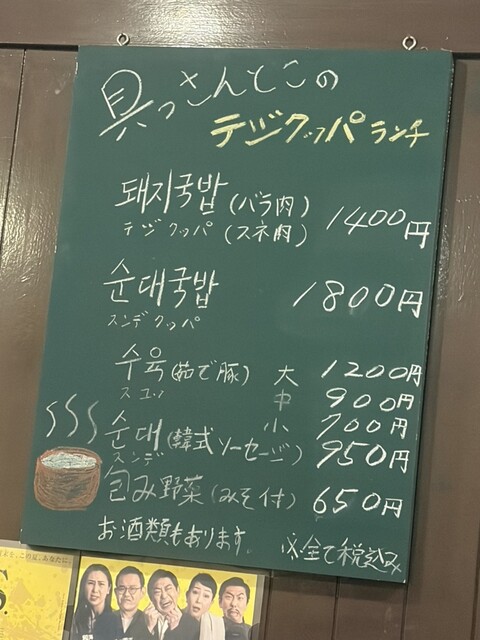 具っさんとこの
テジクッパランチ
돼지국밥(バラ肉)
テジクッパ(スネ肉) 1400円
순대국밥 1800円
スンデクッパ
수육(茹で豚) 大 1200円
スユッ 中 900円
小 700円
순대(韓式ソーセージ) 950円
スンデ
包み野菜(みそ付) 650円
お酒類もあります。 ※全て税込み